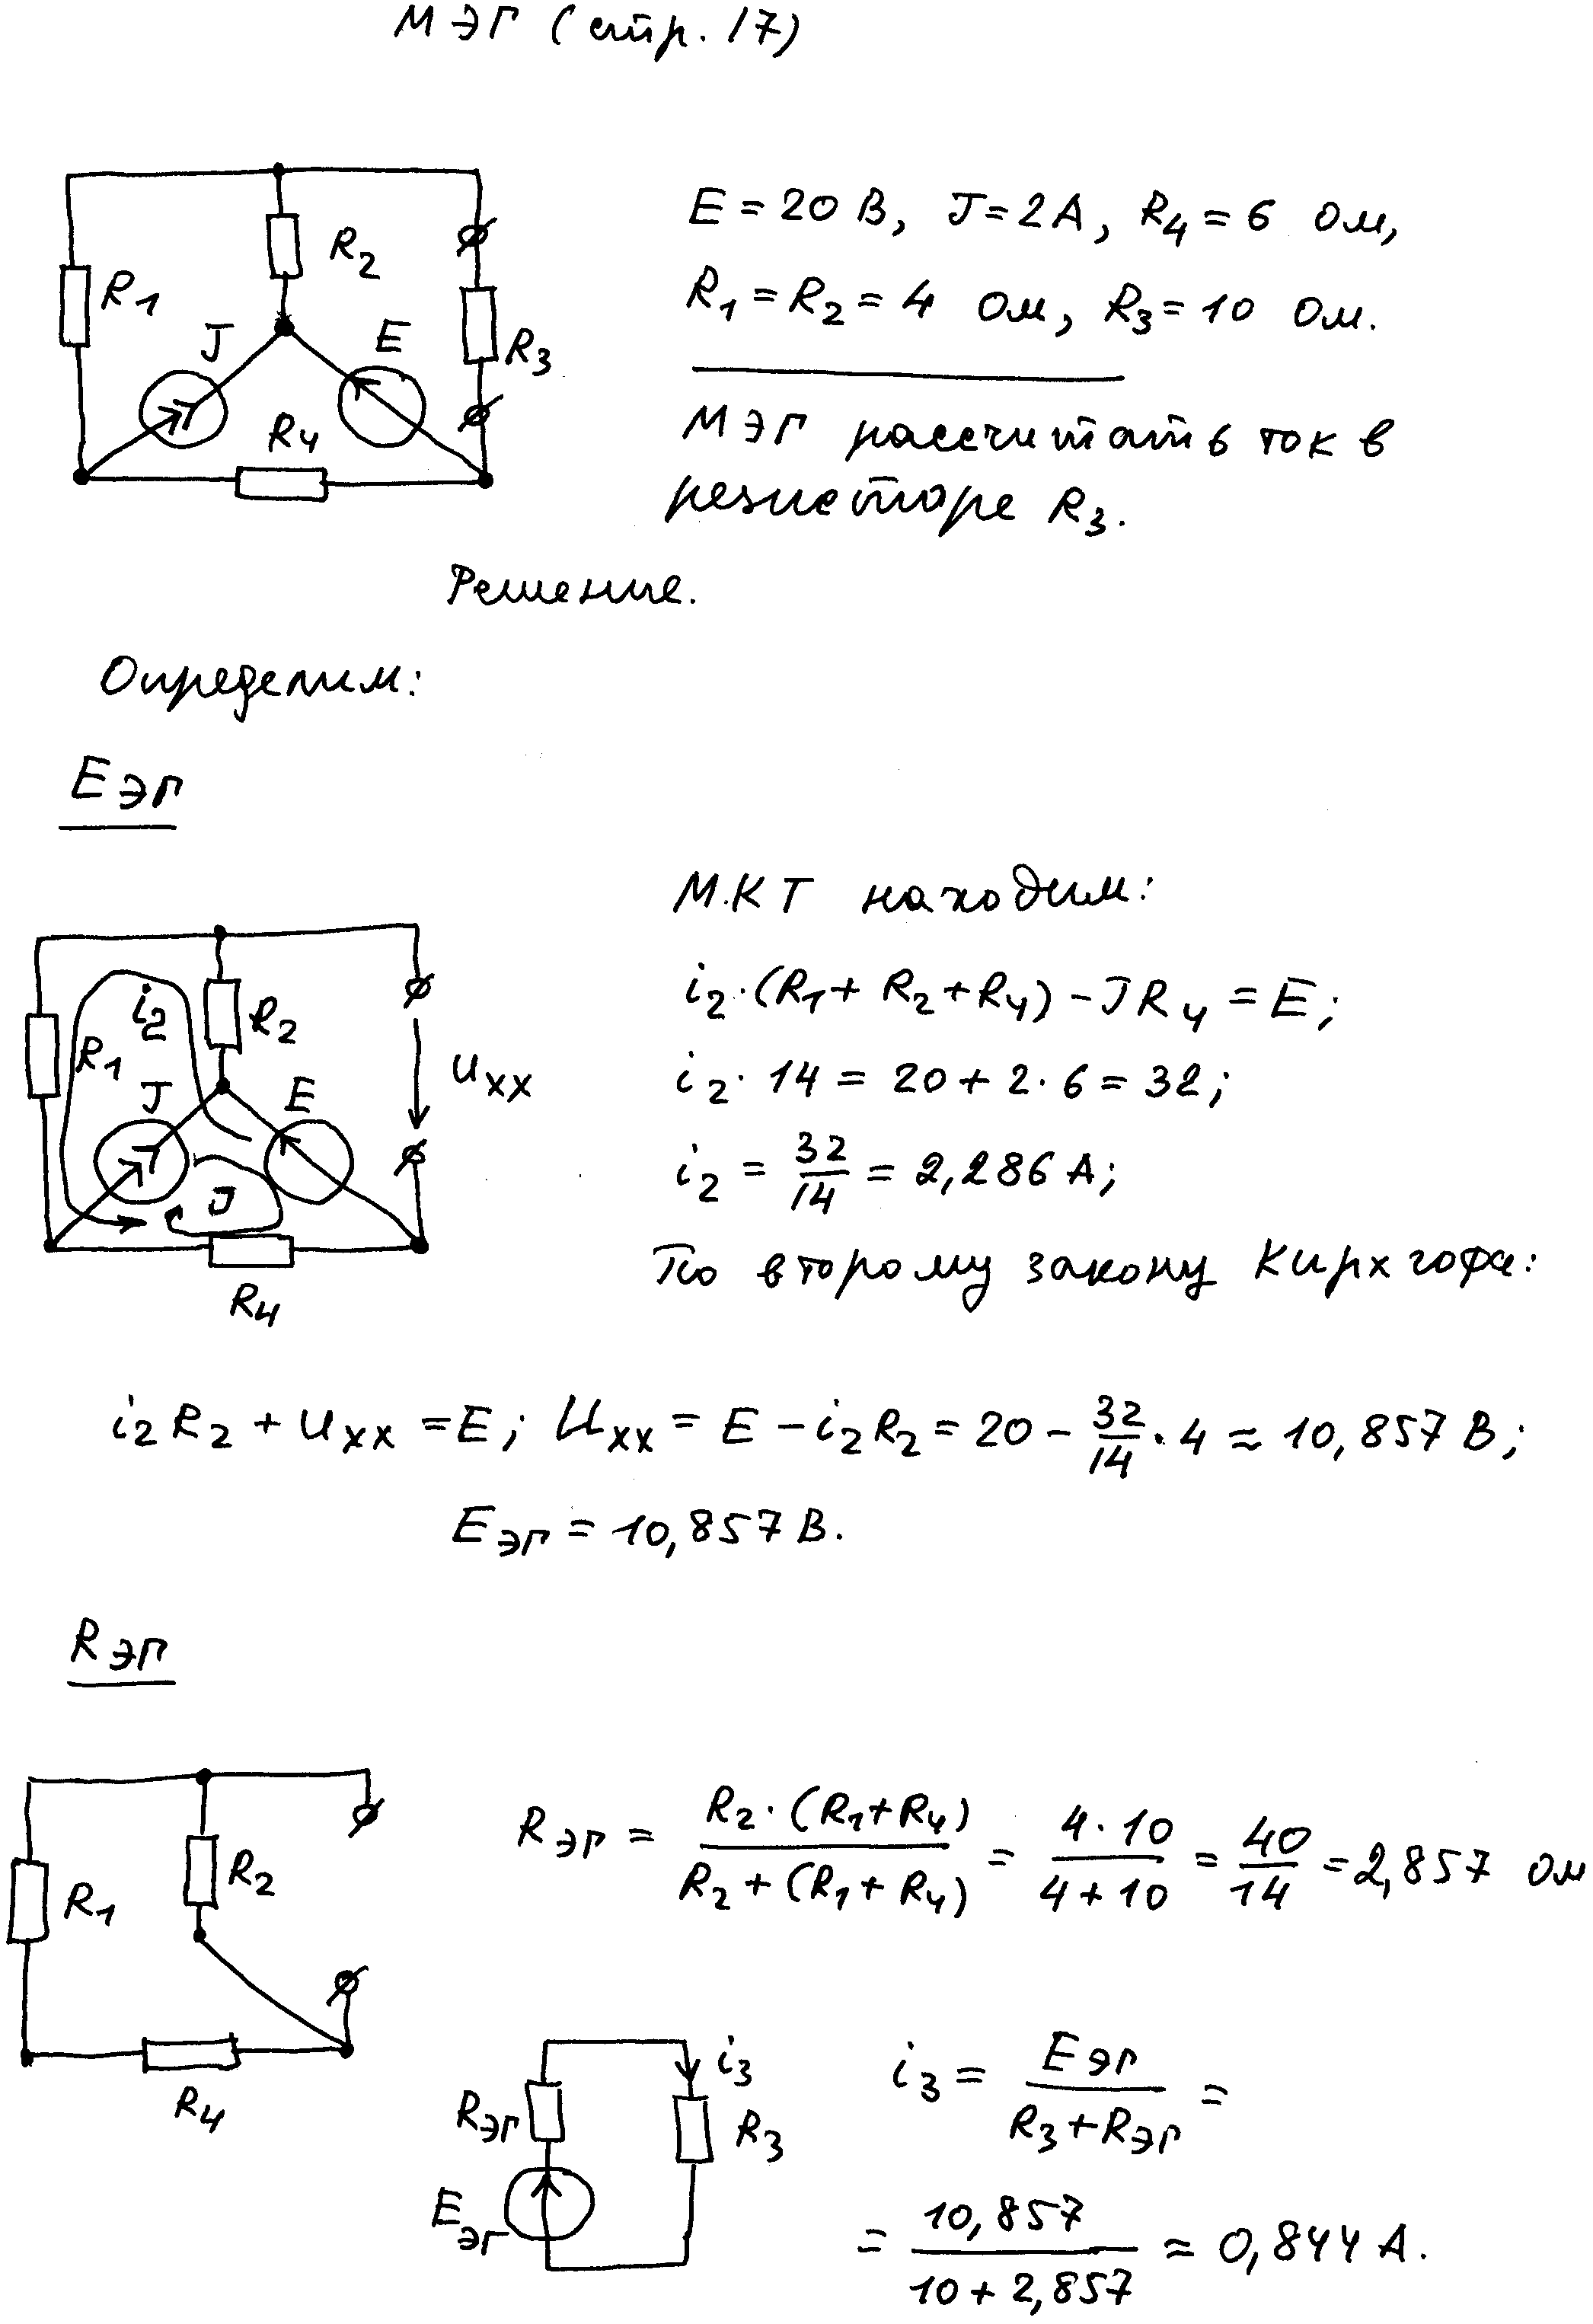 МЭГ (стр. 17)
R1
R2
R3
J
E
R4
E = 20 В, J = 2 А, R4 = 6 Ом,
R1 = R2 = 4 Ом, R3 = 10 Ом.
МЭГ рассчитать ток в
резисторе R3.
Решение.
Определим:
EЭГ
МКТ находим:
i2·(R1 + R2 + R4) - JR4 = E;
i2·14 = 20 + 2·6 = 32;
i2 = 32/14 = 2,286 А;
По второму закону Кирхгофа:
R1
i2
R2
J
E
Uxx
J
R4
i2R2 + Uxx = E; Uxx = E - i2R2 = 20 - 32/14·4 ≈ 10,857 В;
EЭГ = 10,857 В.
RЭГ
R1
R2
R4
RЭГ = R2·(R1+R4)/R2+(R1+R4) = 4·10/4+10 = 40/14 = 2,857 Ом
RЭГ
EЭГ
i3
R3
i3 = EЭГ/R3+RЭГ =
= 10,857/10+2,857 ≈ 0,844 А.